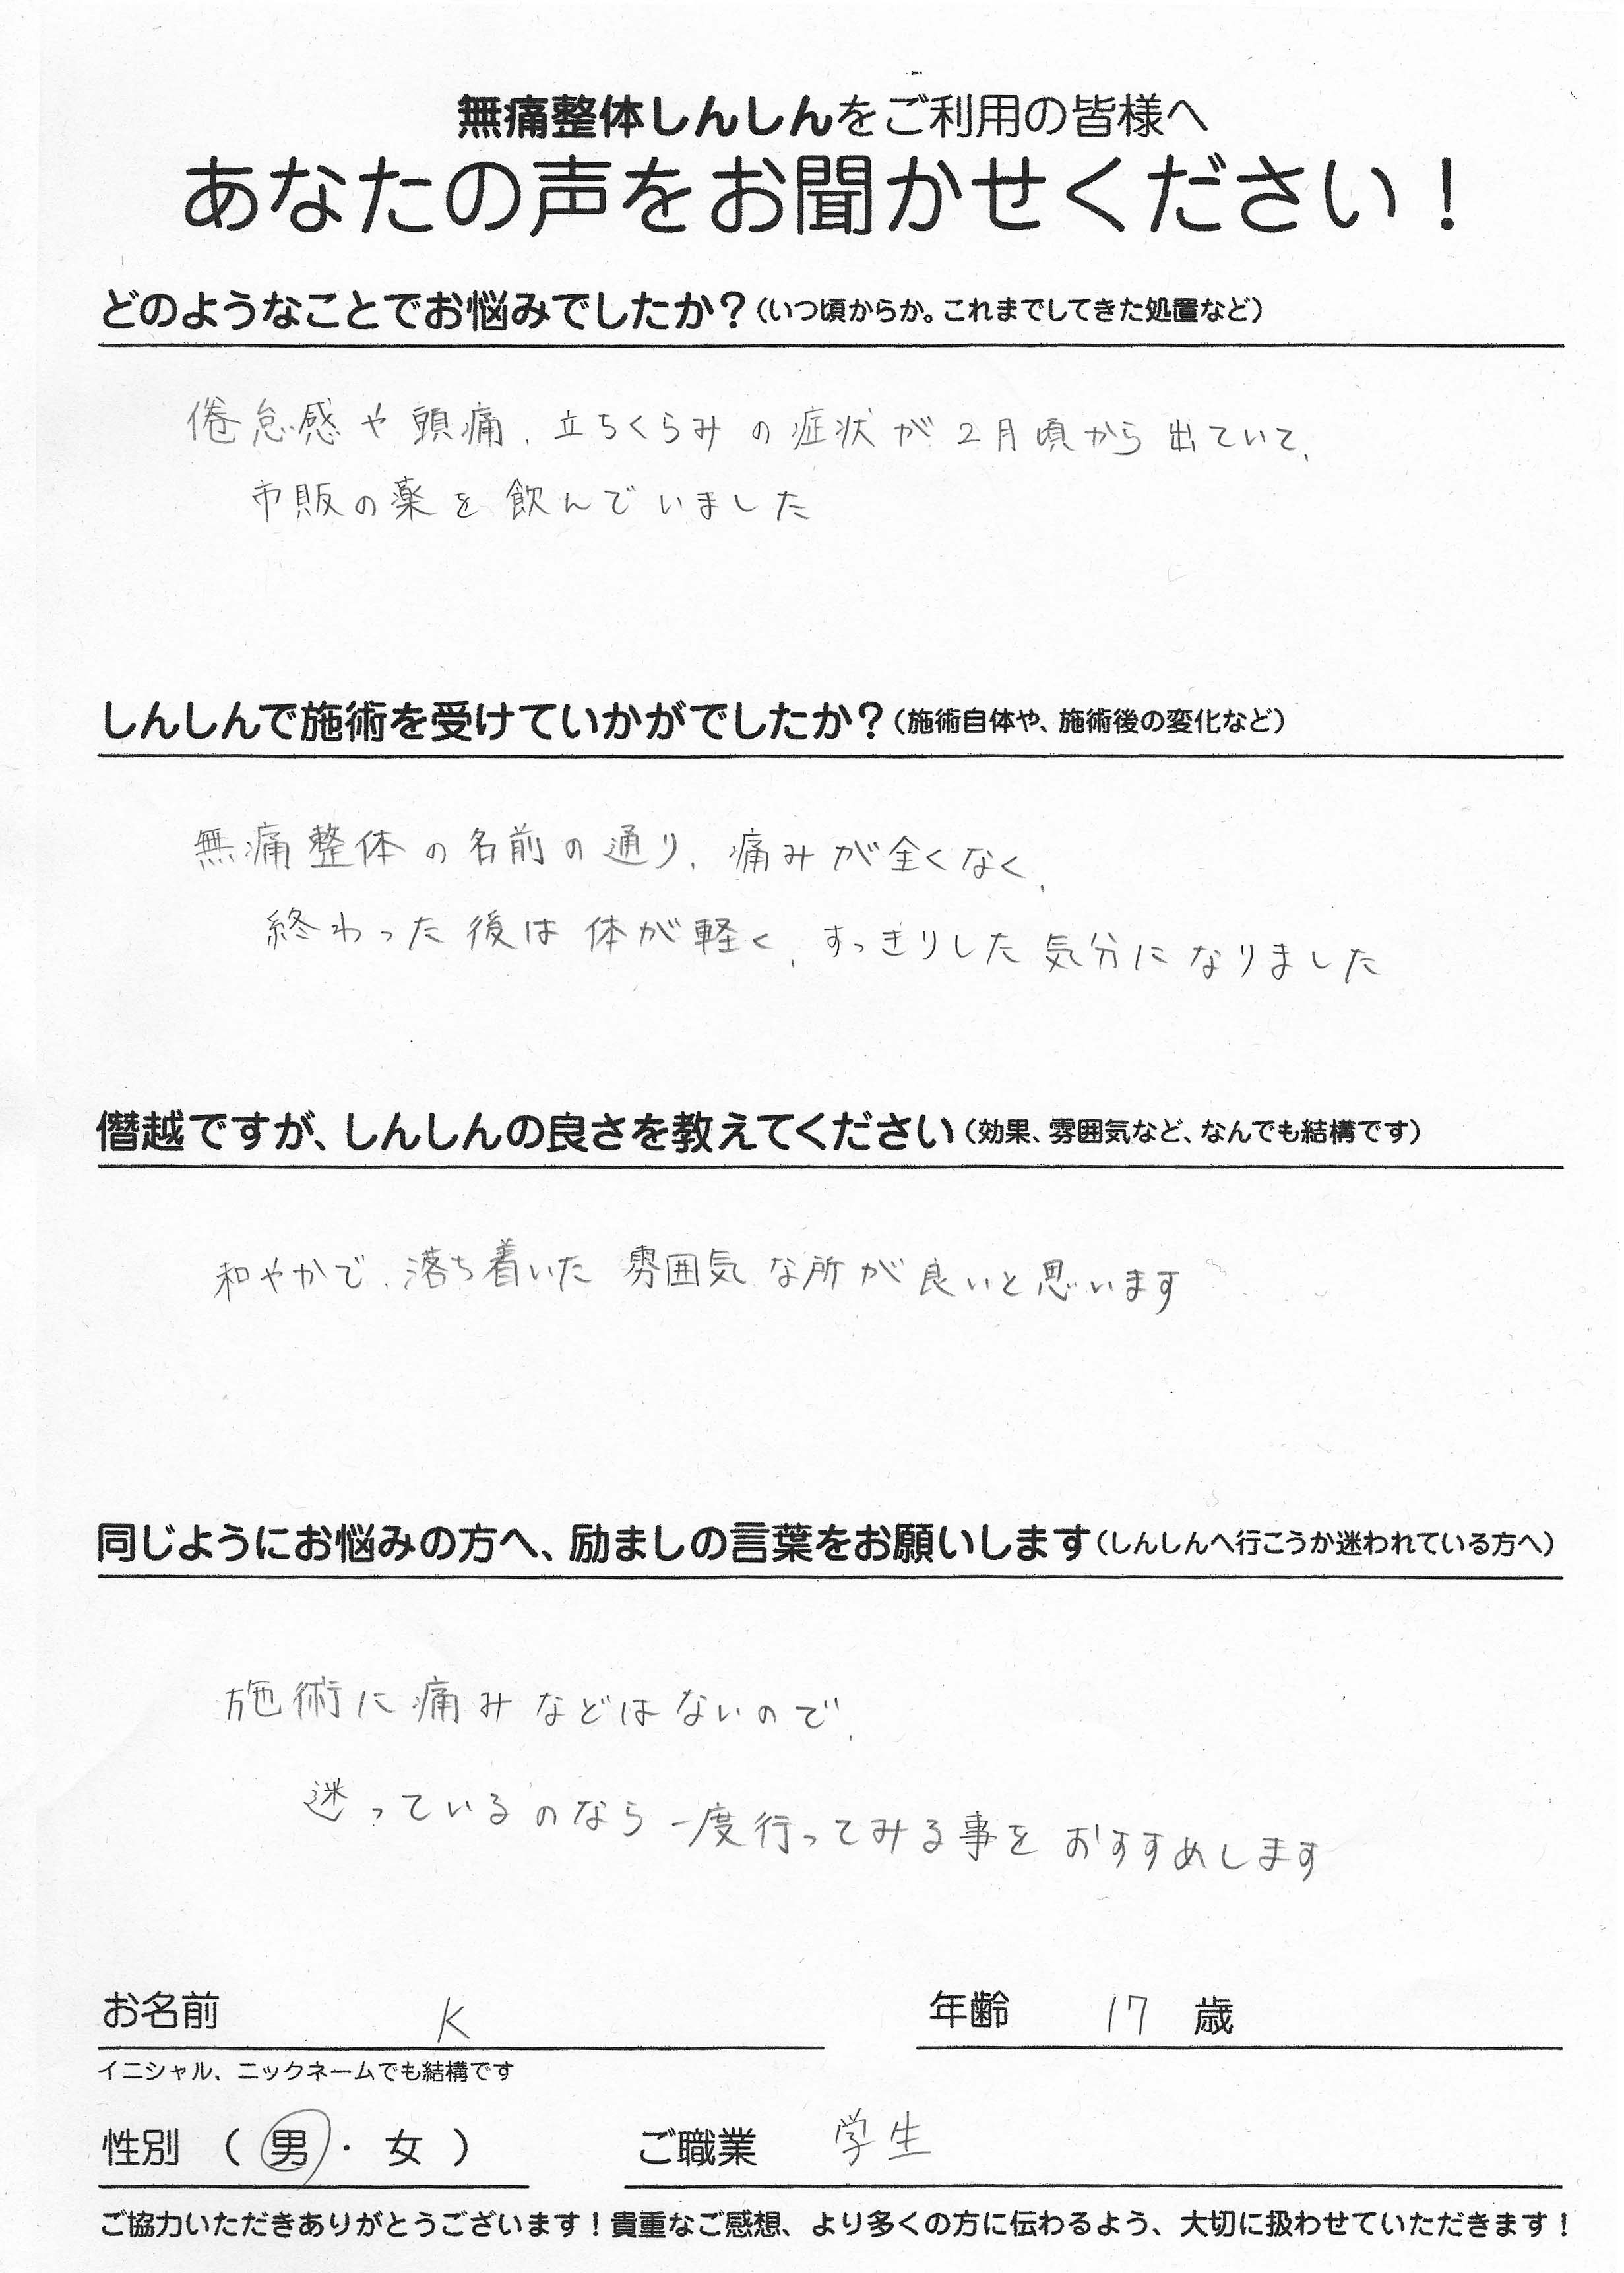 無痛整体しんしんをご利用の皆様へ
あなたの声をお聞かせください！
どのようなことでお悩みでしたか？（いつ頃からか。これまでしてきた処置など）
倦怠感や頭痛、立ちくらみの症状が2月頃から出ていて、
市販の薬を飲んでいました
しんしんで施術を受けていかがでしたか？（施術自体や、施術後の変化など）
無痛整体の名前の通り、痛みが全くなく、
終わった後は体が軽く、すっきりした気分になりました
僭越ですが、しんしんの良さを教えてください（効果、雰囲気など、なんでも結構です）
和やかで、落ち着いた雰囲気な所が良いと思います
同じようにお悩みの方へ、励ましの言葉をお願いします（しんしんへ行こうか迷われている方へ）
施術に痛みなどはないので、
迷っているのなら一度行ってみる事をおすすめします
お名前 K 年齢 17 歳
イニシャル、ニックネームでも結構です
性別（男・女） ご職業 学生
ご協力いただきありがとうございます！貴重なご感想、より多くの方に伝わるよう、大切に扱わせていただきます！